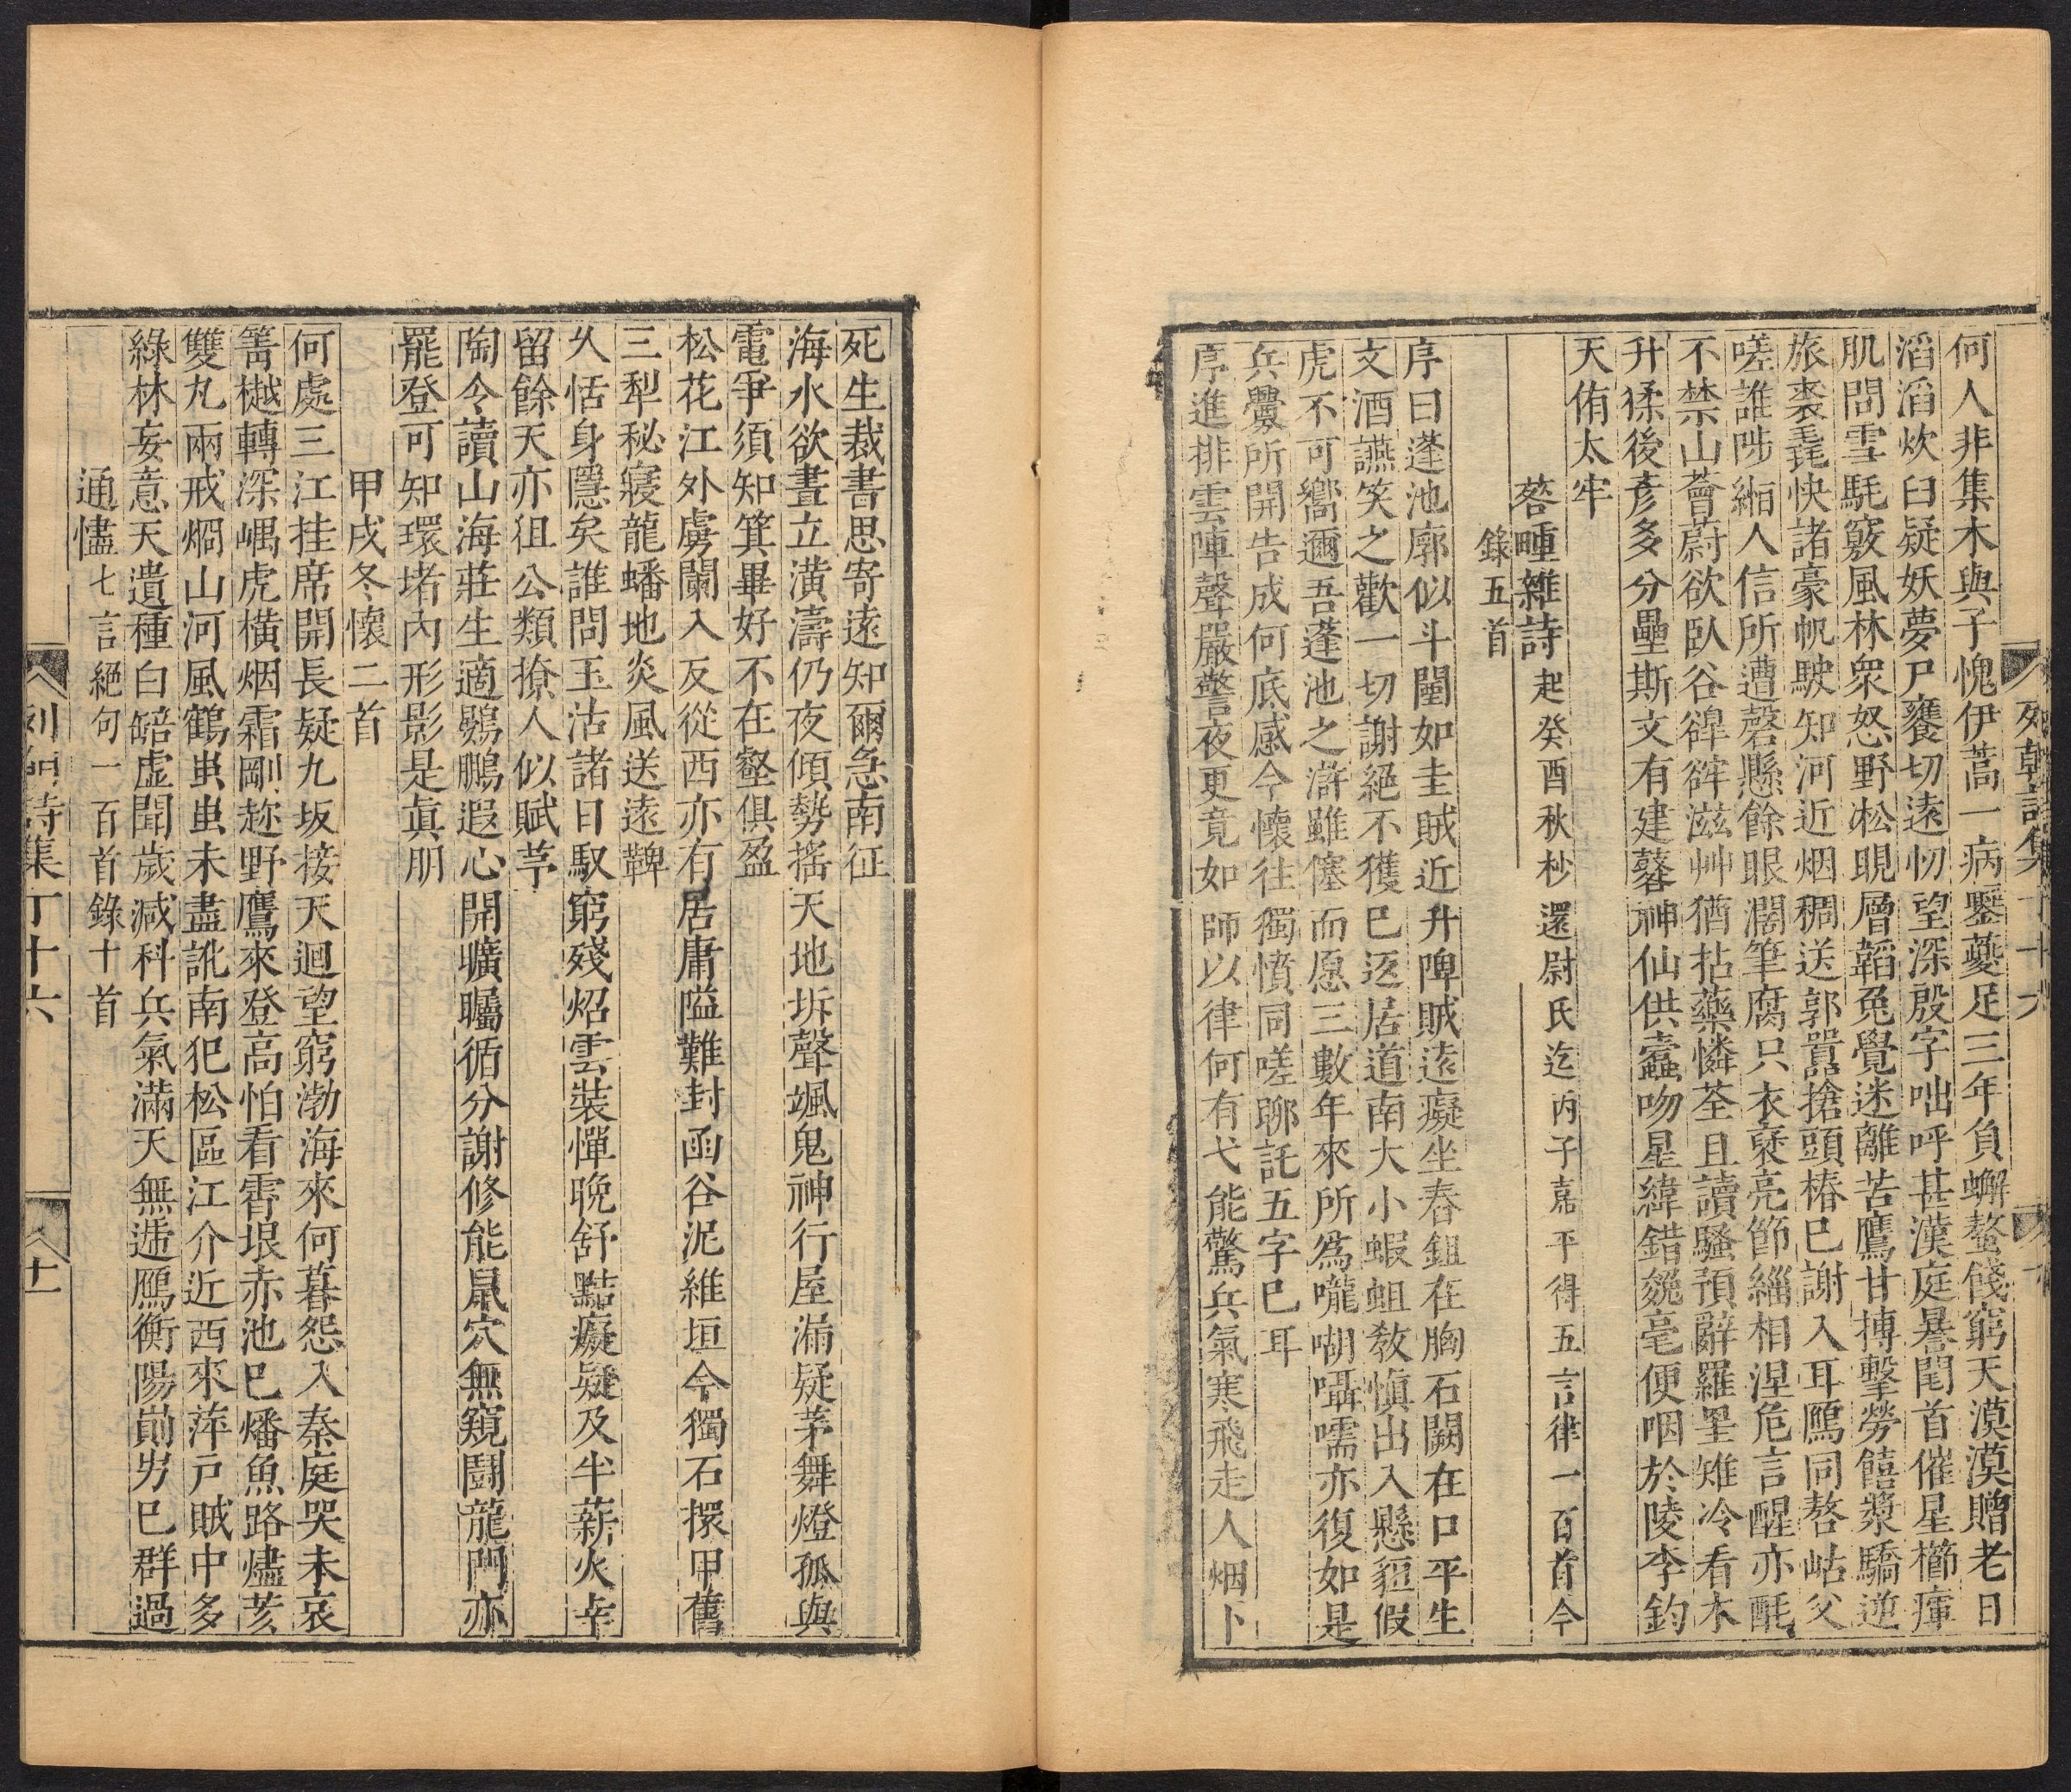 何人非集木與子愧伊蒿一病鑒蘷足三年負蠏螯餞窮天漠漠贈老日
滔滔炊臼疑妖夢尸饔切遠忉望深殷字咄呼甚漢庭㬥閏首催星櫛瘇
肌問雪毦竅風林衆怒野凇睍層韜兔覺迷離苦鷹甘摶擊勞饎漿驕逆
旅裘毳快諸豪帆駛知河近烟稠送郭囂搶頭樁巳謝入耳鴈同嗸岵父
嗟誰陟緗人信所遭磬懸餘眼濶筆腐只衣褒亮節緇相涅危言醒亦酕
不禁山薈蔚欲臥谷皥皞滋艸猶拈藥憐荃且讀騷預辭羅㽮雉冷看木
升猱後彥多分壘斯文有建蕟神仙供蠧吻星緯錯㲝毫便咽於陵李鈞
天侑太牢
荅畽雜詩起癸酉秋杪還尉氏迄丙子嘉平得五言律一百首今
錄五首
序曰蓬池廓似斗閨如圭賊近升陴賊遠癡坐舂鉏在胸石闕在口平生
文酒讌笑之歡一切謝絕不獲巳迄居道南大小蝦蛆敎愼出入懸貆假
虎不可嚮邇吾蓬池之滸雖僿而愿三數年來所爲嚨嘝囁嚅亦復如是
兵釁所開告成何底感今懷往獨憤同嗟聊託五字巳耳
序進排雲陣聲嚴警夜更竟如師以律何有弋能驚兵氣寒飛走人烟卜
死生裁書思寄遠知爾急南征
海水欲晝立潢濤仍夜傾勢搖天地坼聲颯鬼神行屋漏疑茅舞燈孤與
電爭須知箕畢好不在壑俱盈
松花江外虜闌入反從西亦有居庸隘難封函谷泥維垣今獨石擐甲舊
三犁秘寢龍蟠地炎風送遠鞞
久恬身隱矣誰問玉沽諸日馭窮殘炤雲裝憚晚舒黠癡疑及半薪火幸
留餘天亦狙公類撩人似賦芧
陶令讀山海莊生適鷃鵬遐心開曠矚循分謝修能鼠穴無窺鬪龍門亦
罷登可知環堵內形影是眞朋
甲戌冬懷二首
何處三江挂席開長疑九坂接天迴望窮渤海來何暮怨入秦庭哭未哀
箐樾轉深嵎虎橫烟霜剛趂野鷹來登高怕看霄垠赤池巳燔魚路燼荄
雙丸兩戒烱山河風鶴䖝䖝未盡訛南犯松區江介近西來萍戶賊中多
綠林妄意天遺種白䜾虛聞歲減科兵氣滿天無遞鴈衡陽勛岃巳群過
通懂七言絕句一百首錄十首
詩集丁十六
十一